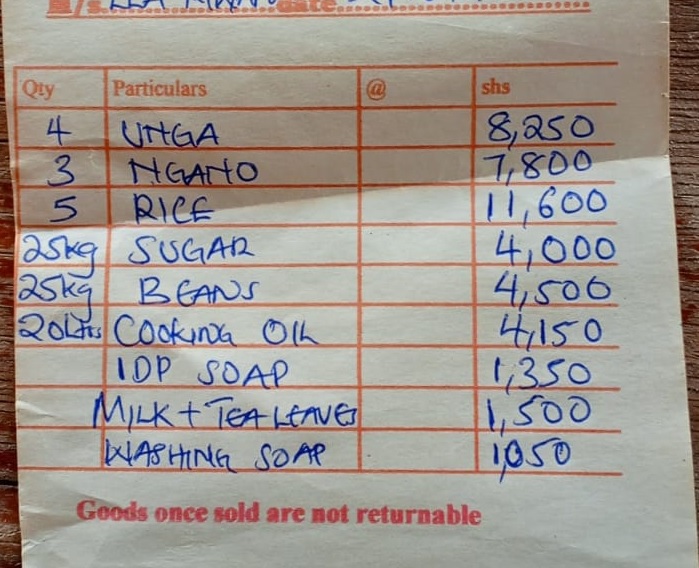 date
Qty Particulars @ shs
4 UNGA 8,250
3 NGANO 7,800
5 RICE 11,600
25kg SUGAR 4,000
25kg BEANS 4,500
20Ltrs COOKING OIL 4,150
1DP SOAP 1,350
MILK + TEA LEAVES 1,500
WASHING SOAP 1,050
Goods once sold are not returnable